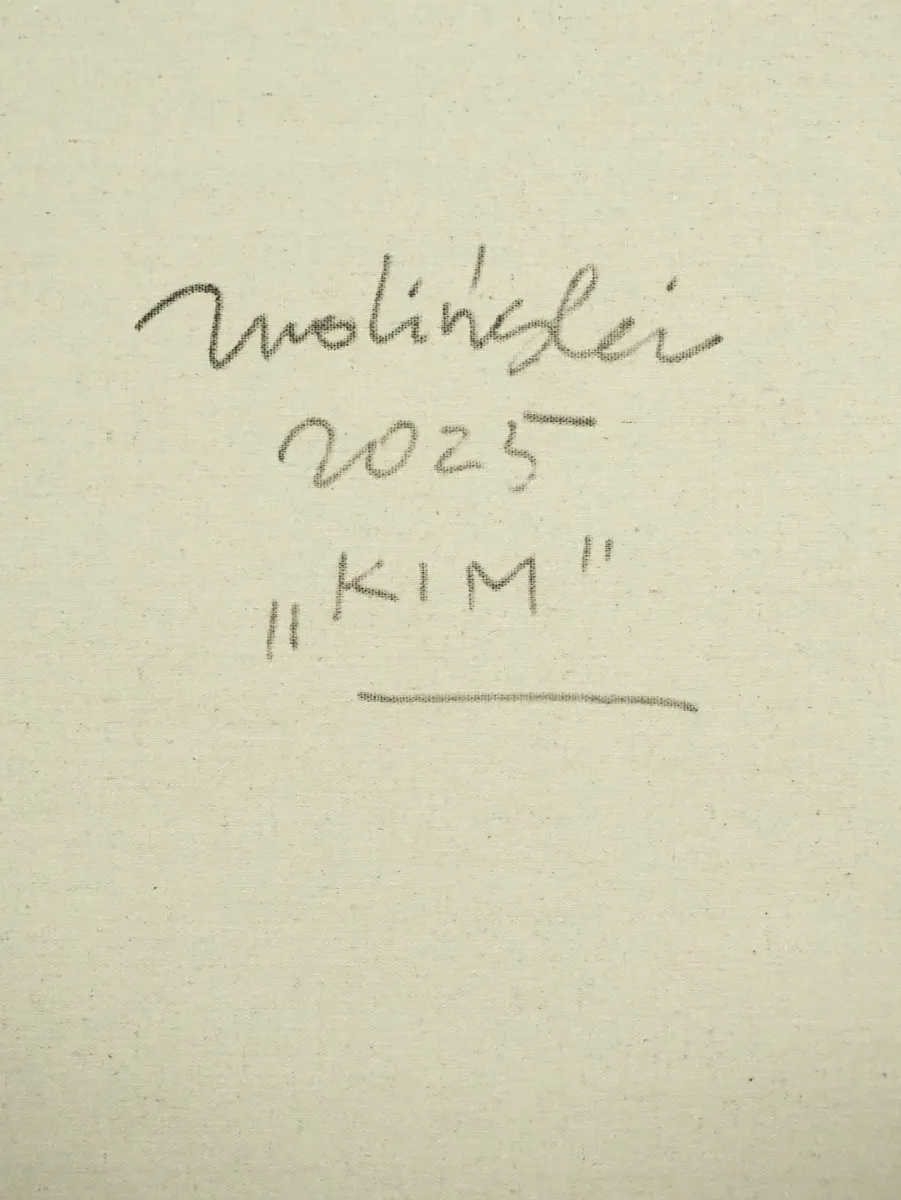 Moliński
2025
„KIM"